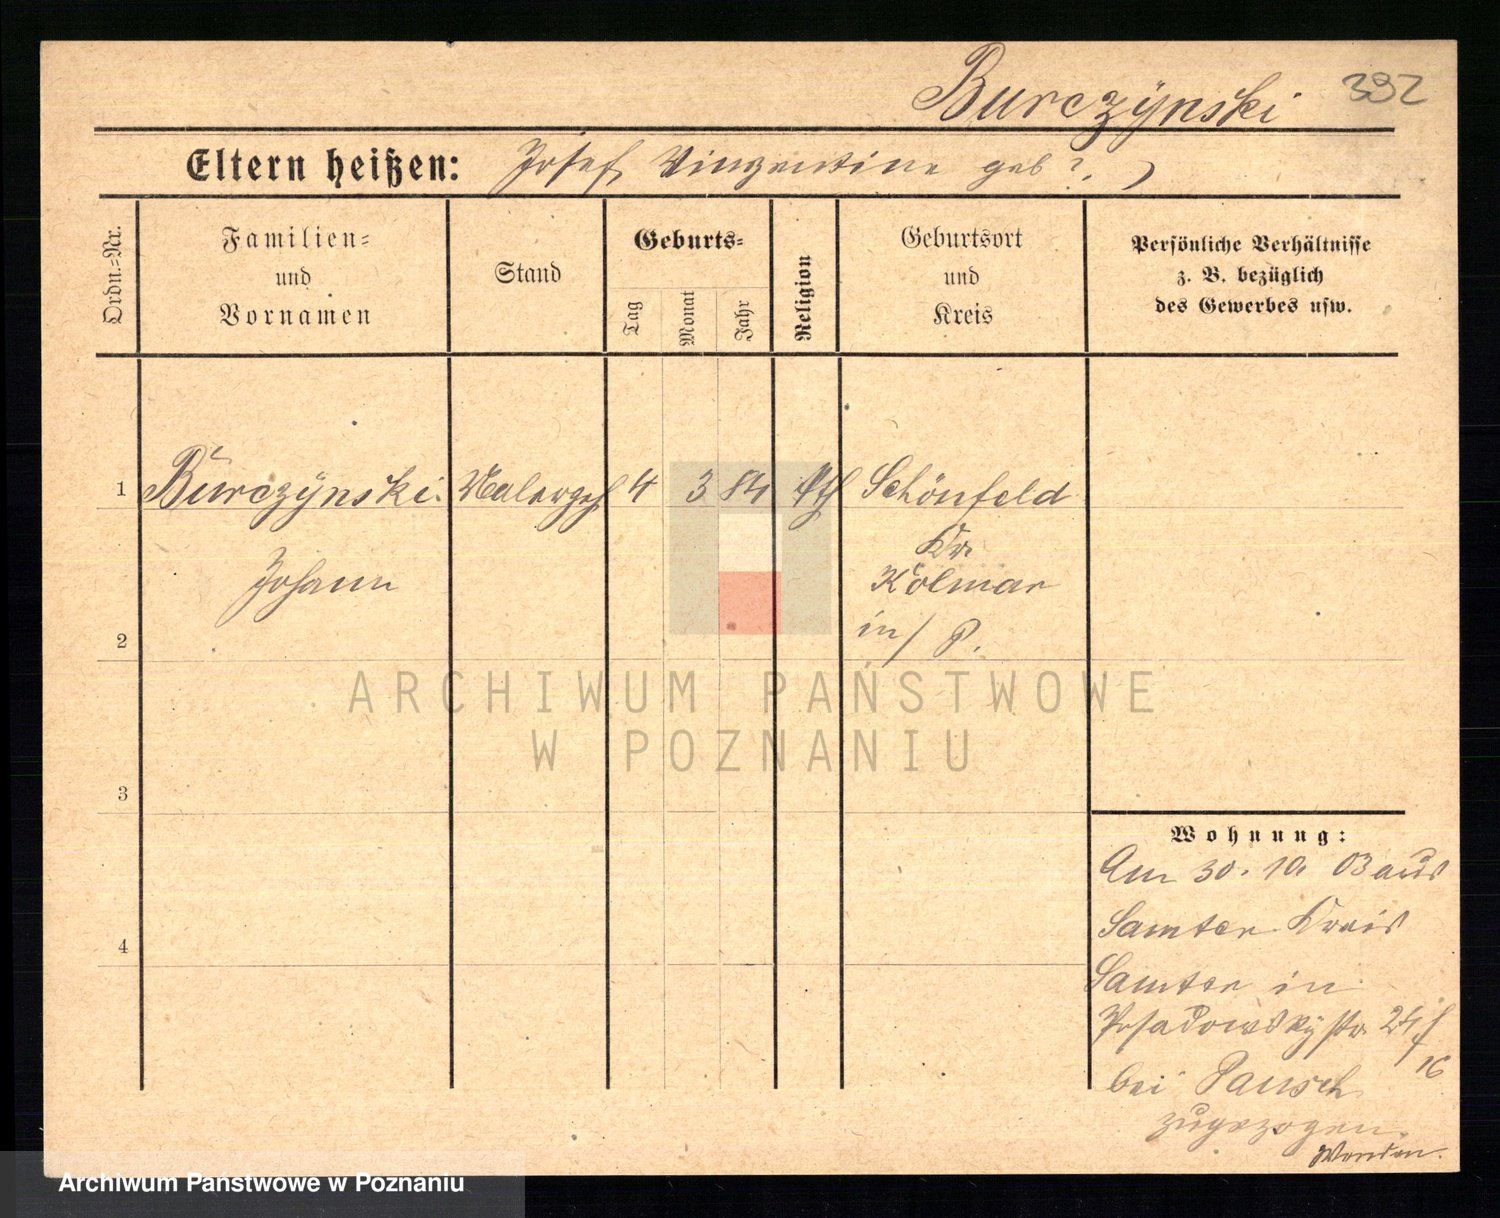 Burczynski 392
Eltern heißen: Josef, Vinzentine geb?.
Ordn.=Nr.
Familien=
und
Vornamen
Stand
Geburts=
Tag
Monat
Jahr
Religion
Geburtsort
und
Kreis
Persönliche Verhältnisse
z. B. bezüglich
des Gewerbes usw.
1 Burczynski Malergeh 4 3 84 kth Schönfeld
Johann
Kr.
Kolmar
in/P.
2
3
4
Wohnung:
Am 30. 10. 03 aus
Samter Kreis
Samter in
Posadowskystr. 24 f
bei Pausch 16
zugezogen.
ARCHIWUM PAŃSTWOWE
W POZNANIU
Archiwum Państwowe w Poznaniu